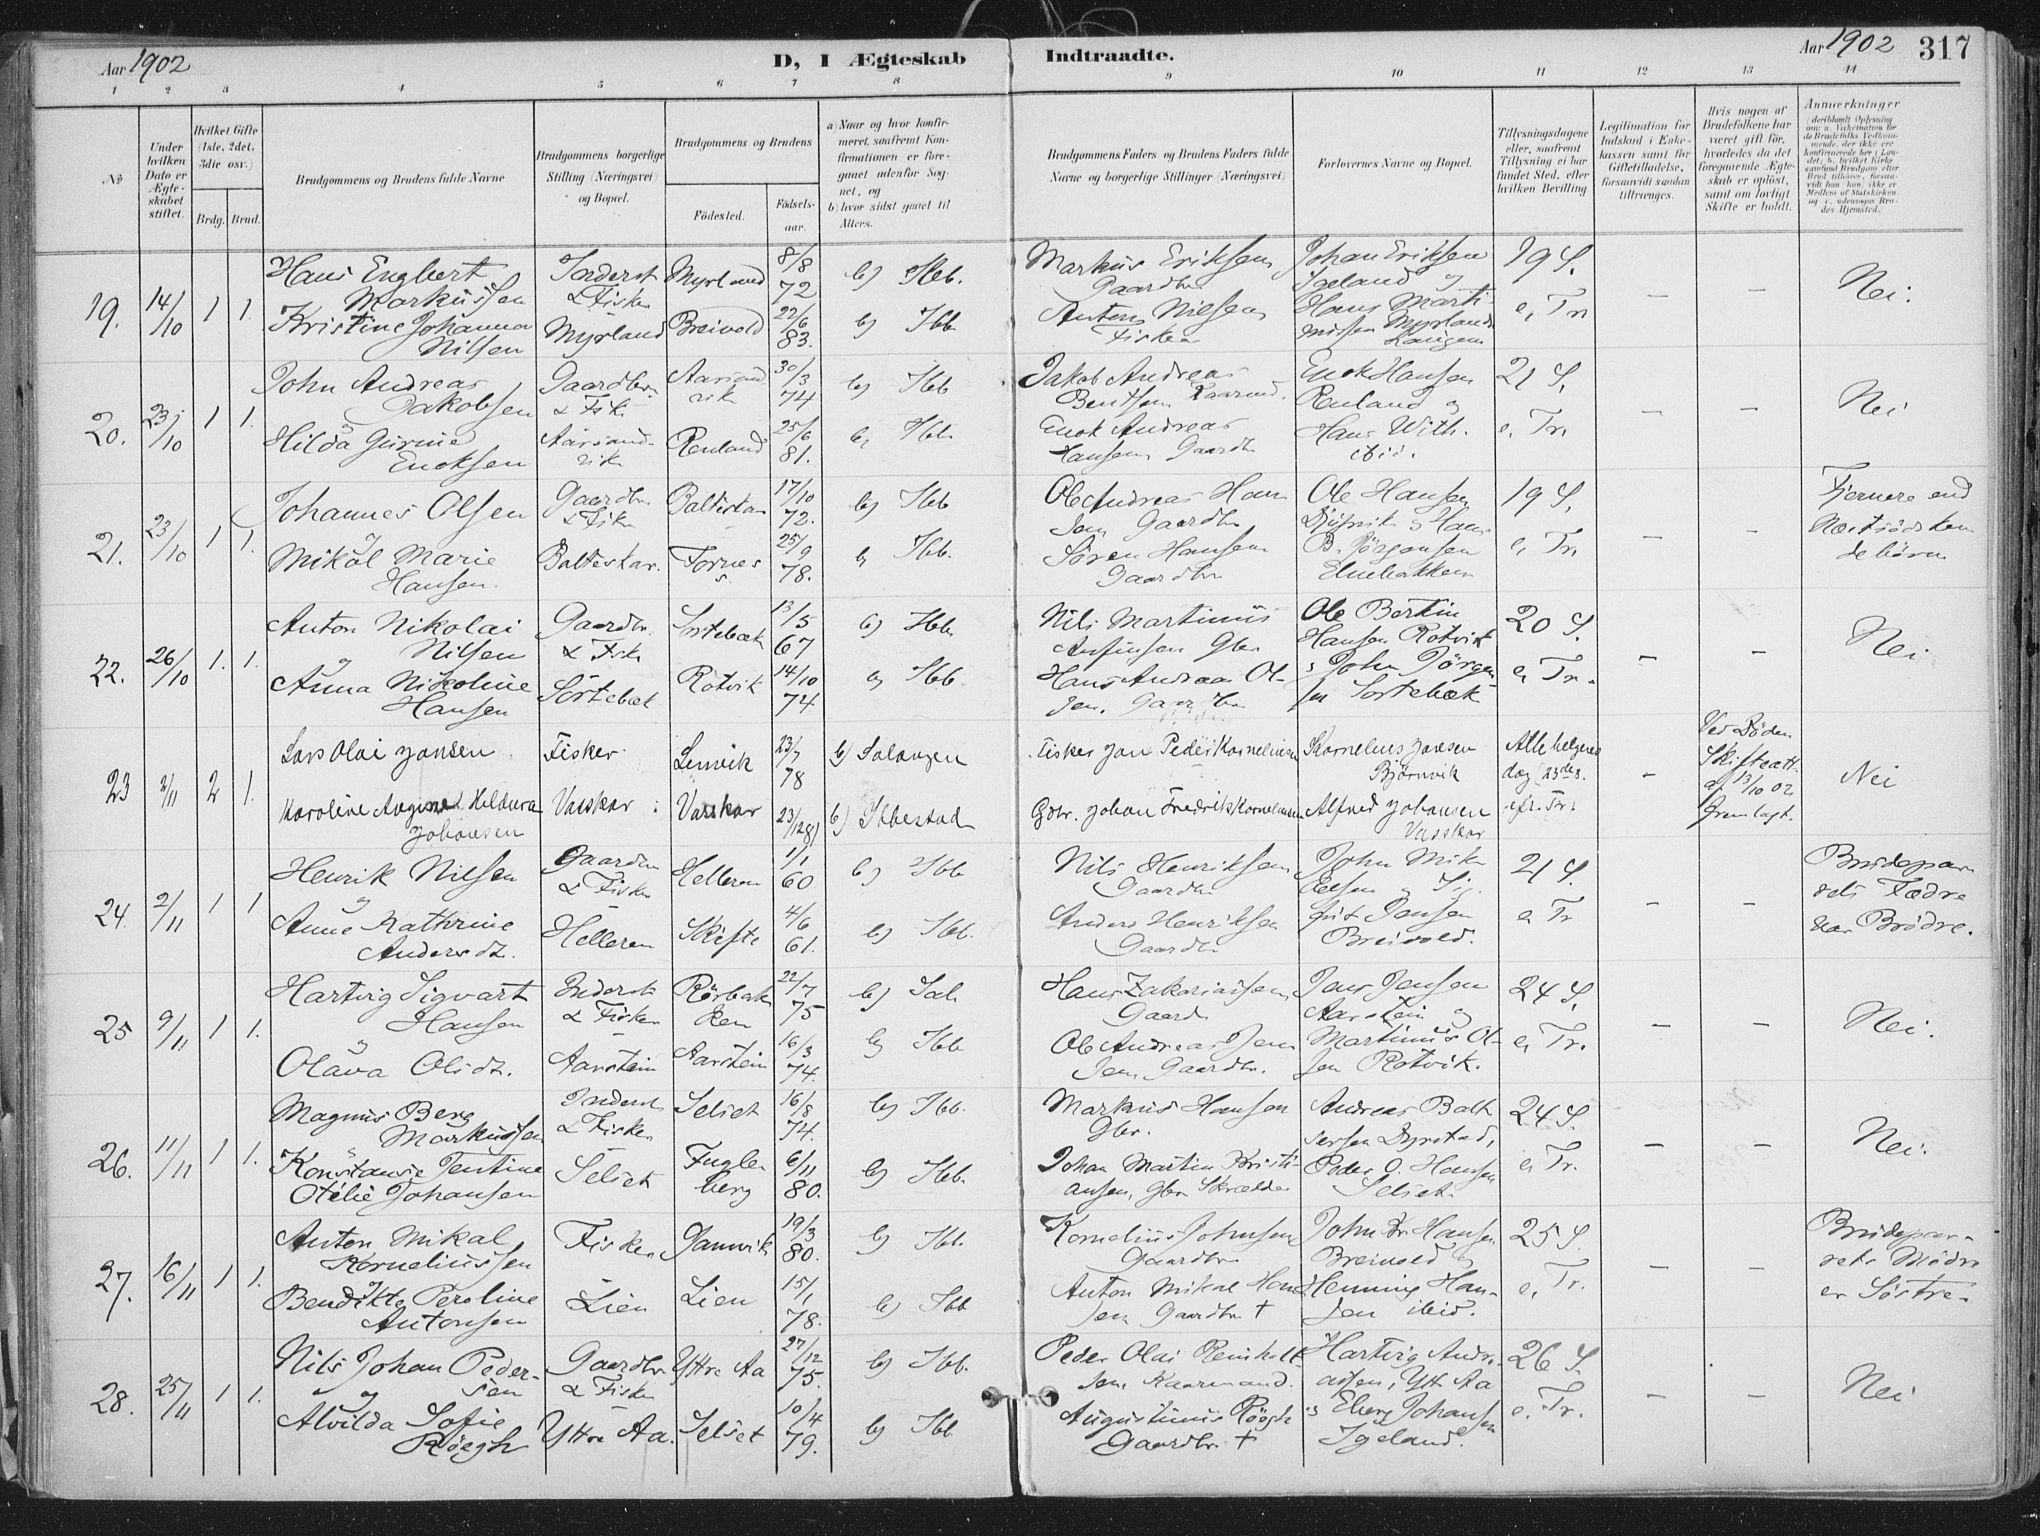 Aar 1902
D, I Ægteskab Indtraadte.
Aar 1902 317
1 2 3 4 5 6 7 8 9 10 11 12 13 14
No
Under hvilken Dato er Ægteskabet stiftet.
Hvilket Gifte (1ste, 2det, 3die osv.)
Brdg. Brud.
Brudgommens og Brudens fulde Navne
Brudgommens borgerlige Stilling (Næringsvei) og Bopæl.
Brudgommens og Brudens
Födested.
Födselsaar.
a) Naar og hvor konfirmeret, saafremt Konfirmationen er foregaaet udenfor Sognet, og
b) hvor sidst gaaet til Alters.
Brudgommens Faders og Brudens Faders fulde Navne og borgerlige Stillinger (Næringsvei)
Forlovernes Navne og Bopæl.
Tillysningsdagene eller, saafremt Tillysning ei har fundet Sted, efter hvilken Bevilling
Legitimation for Indskud i Enkekassen samt for Giftetilladelse, forsaavidt saadan tiltrænges.
Hvis nogen af Brudefolkene har været gift för, hvorledes da det foregaaende Ægteskab er oplöst, samt om lovligt Skifte er holdt.
Anmerkninger
19. 14/10 1 1.
Hans Engbert Markussen
Inderst & Fisker
Myrland 8/8 72 b) Ibb.
Markus Eriksen Gaardbr
Johan Eriksen Igeland og
19 S.
Kristine Johanna Nilsen
Myrland Breivold 22/6 83. b) Ibb
Anton Nilsen Fisker
Hans Martinussen Myrland
e, Tr. — — Nei.
20. 23/10 1 1.
John Andreas Jakobsen
Gaardbr. & Fisk
30/3 74 b) Ibb
Jakob Andreas Bentsen
Enok Hansen Renland og
21 S.
Hilda Gurine Enoksen
Renland 25/6 81. b) Ibb
Enok Andreas Hansen Gaardbr
Hans With. ibid.
e. Tr. — — Nei
21. 23/10 1 1.
Johannes Olsen
Gaardbr & Fisk
Balteskar 17/10 72. b) Ibb
Ole Andreas Hansen Gaardbr
Ole Hansen
19 S.
Mikal Marie Hansen.
Balteskar. Fornes 25/9 78. b) Ibb.
Sören Hansen Gaardbr
B. Jörgensen
e, Tr. — —
Fjernere end Næstsödskendebörn
22. 26/10 1. 1.
Anton Nikolai Nilsen
Gaardbr. & Fisk
Sortebæk 13/5 67 b) Ibb
Nils Martinus
Ole Bertin Hansen Rotvik
20 S.
Anna Nikoline Hansen
Sörtebæk Rotvik 14/10 74. b) Ibb.
Hans Andreas Olsen. Gaardbr
John Jörgensen Sortebæk
e, Tr. — — Nei
23 2/11 2 1.
Lars Olai Jansen Fisker. Lenvik 23/7 78 b) Salangen
Fisker Jan Peder Kornelius
Kornelius Jansen Bjørnvik
Alle helgens dag 23de S.
Ved Döden Skifteatt. af 13/10 02 fremlagt.
Karoline Augine Heldura Johansen
Vasskar Vasskar 23/12 81 b) Ibbestad
Gbr. Johan Fredrik Kornelius
Alfred Johansen Vasskar
eft. Tr. — Nei
24. 2/11 1 1
Henrik Nilsen
Gaardbr & Fisker
Helleren 1/1 60 b) Ibb
Nils Henriksen Gaardbr
John Mikkelsen og
21 S.
Anne Kathrine Andersdt.
Helleren Skifte 4/6 61. b) Ibb.
Anders Henriksen Gaardbr
Jensen Breivold.
e. Tr — —
Brudeparrets Fædre var Brödre.
25 9/11 1 1.
Hartvig Sigvart Hansen
Inderst & Fisker
Rörbakken 22/7 75 b) Sal
Hans Zakariassen Gaardbr
Jens Jensen Aarstein og
24 S.
Olava Olsdt.
Aarstein Aarstein 16/3 74. b) Ibb
Ole Andreas Jensen Gaardbr.
Martinus Olsen Rotvik.
e, Tr. — — Nei.
26. 11/11 1 1.
Magnus Berg Markussen
Inderst & Fisker
Selset 16/8 74. b) Ibb.
Markus Hansen Gbr.
Andreas Baltsersen Dyrstad,
24 S.
Konstanse Tentine Otelie Johansen
Selset Fuglberg 6/11 80. b) Ibb.
Johan Martin Kristiansen, Gbr.
Peder O. Hansen Selset.
e, Tr. — — Nei.
27. 16/11 1 1.
Anton Mikal Korneliussen
Fisker Gamvik 19/3 80. b) Ibb.
Kornelius Johnsen Gaardbr
John Hansen Breivold og
25 S.
Bendikte Peroline Antonsen
Lien Lien 15/1 78. b) Ibb
Anton Mikal Hansen Gaardbr †
Henning Hansen ibid.
e, Tr. — —
Brudeparrets Mödre er Söstre.
28. 25/11 1 1.
Nils Johan Pedersen
Gaardbr & Fisker
Yttre Aa 27/12 75. b) Ibb.
Peder Olai Reinholtsen
Hartvig Andreassen, Ytt Aa
26 S.
Alvilda Sofie Röegh
Yttre Aa. Selset 10/4 79. b) Ibb
Augustinus Röegh Gaardbr †
Johansen Igeland.
e. Tr. — — Nei